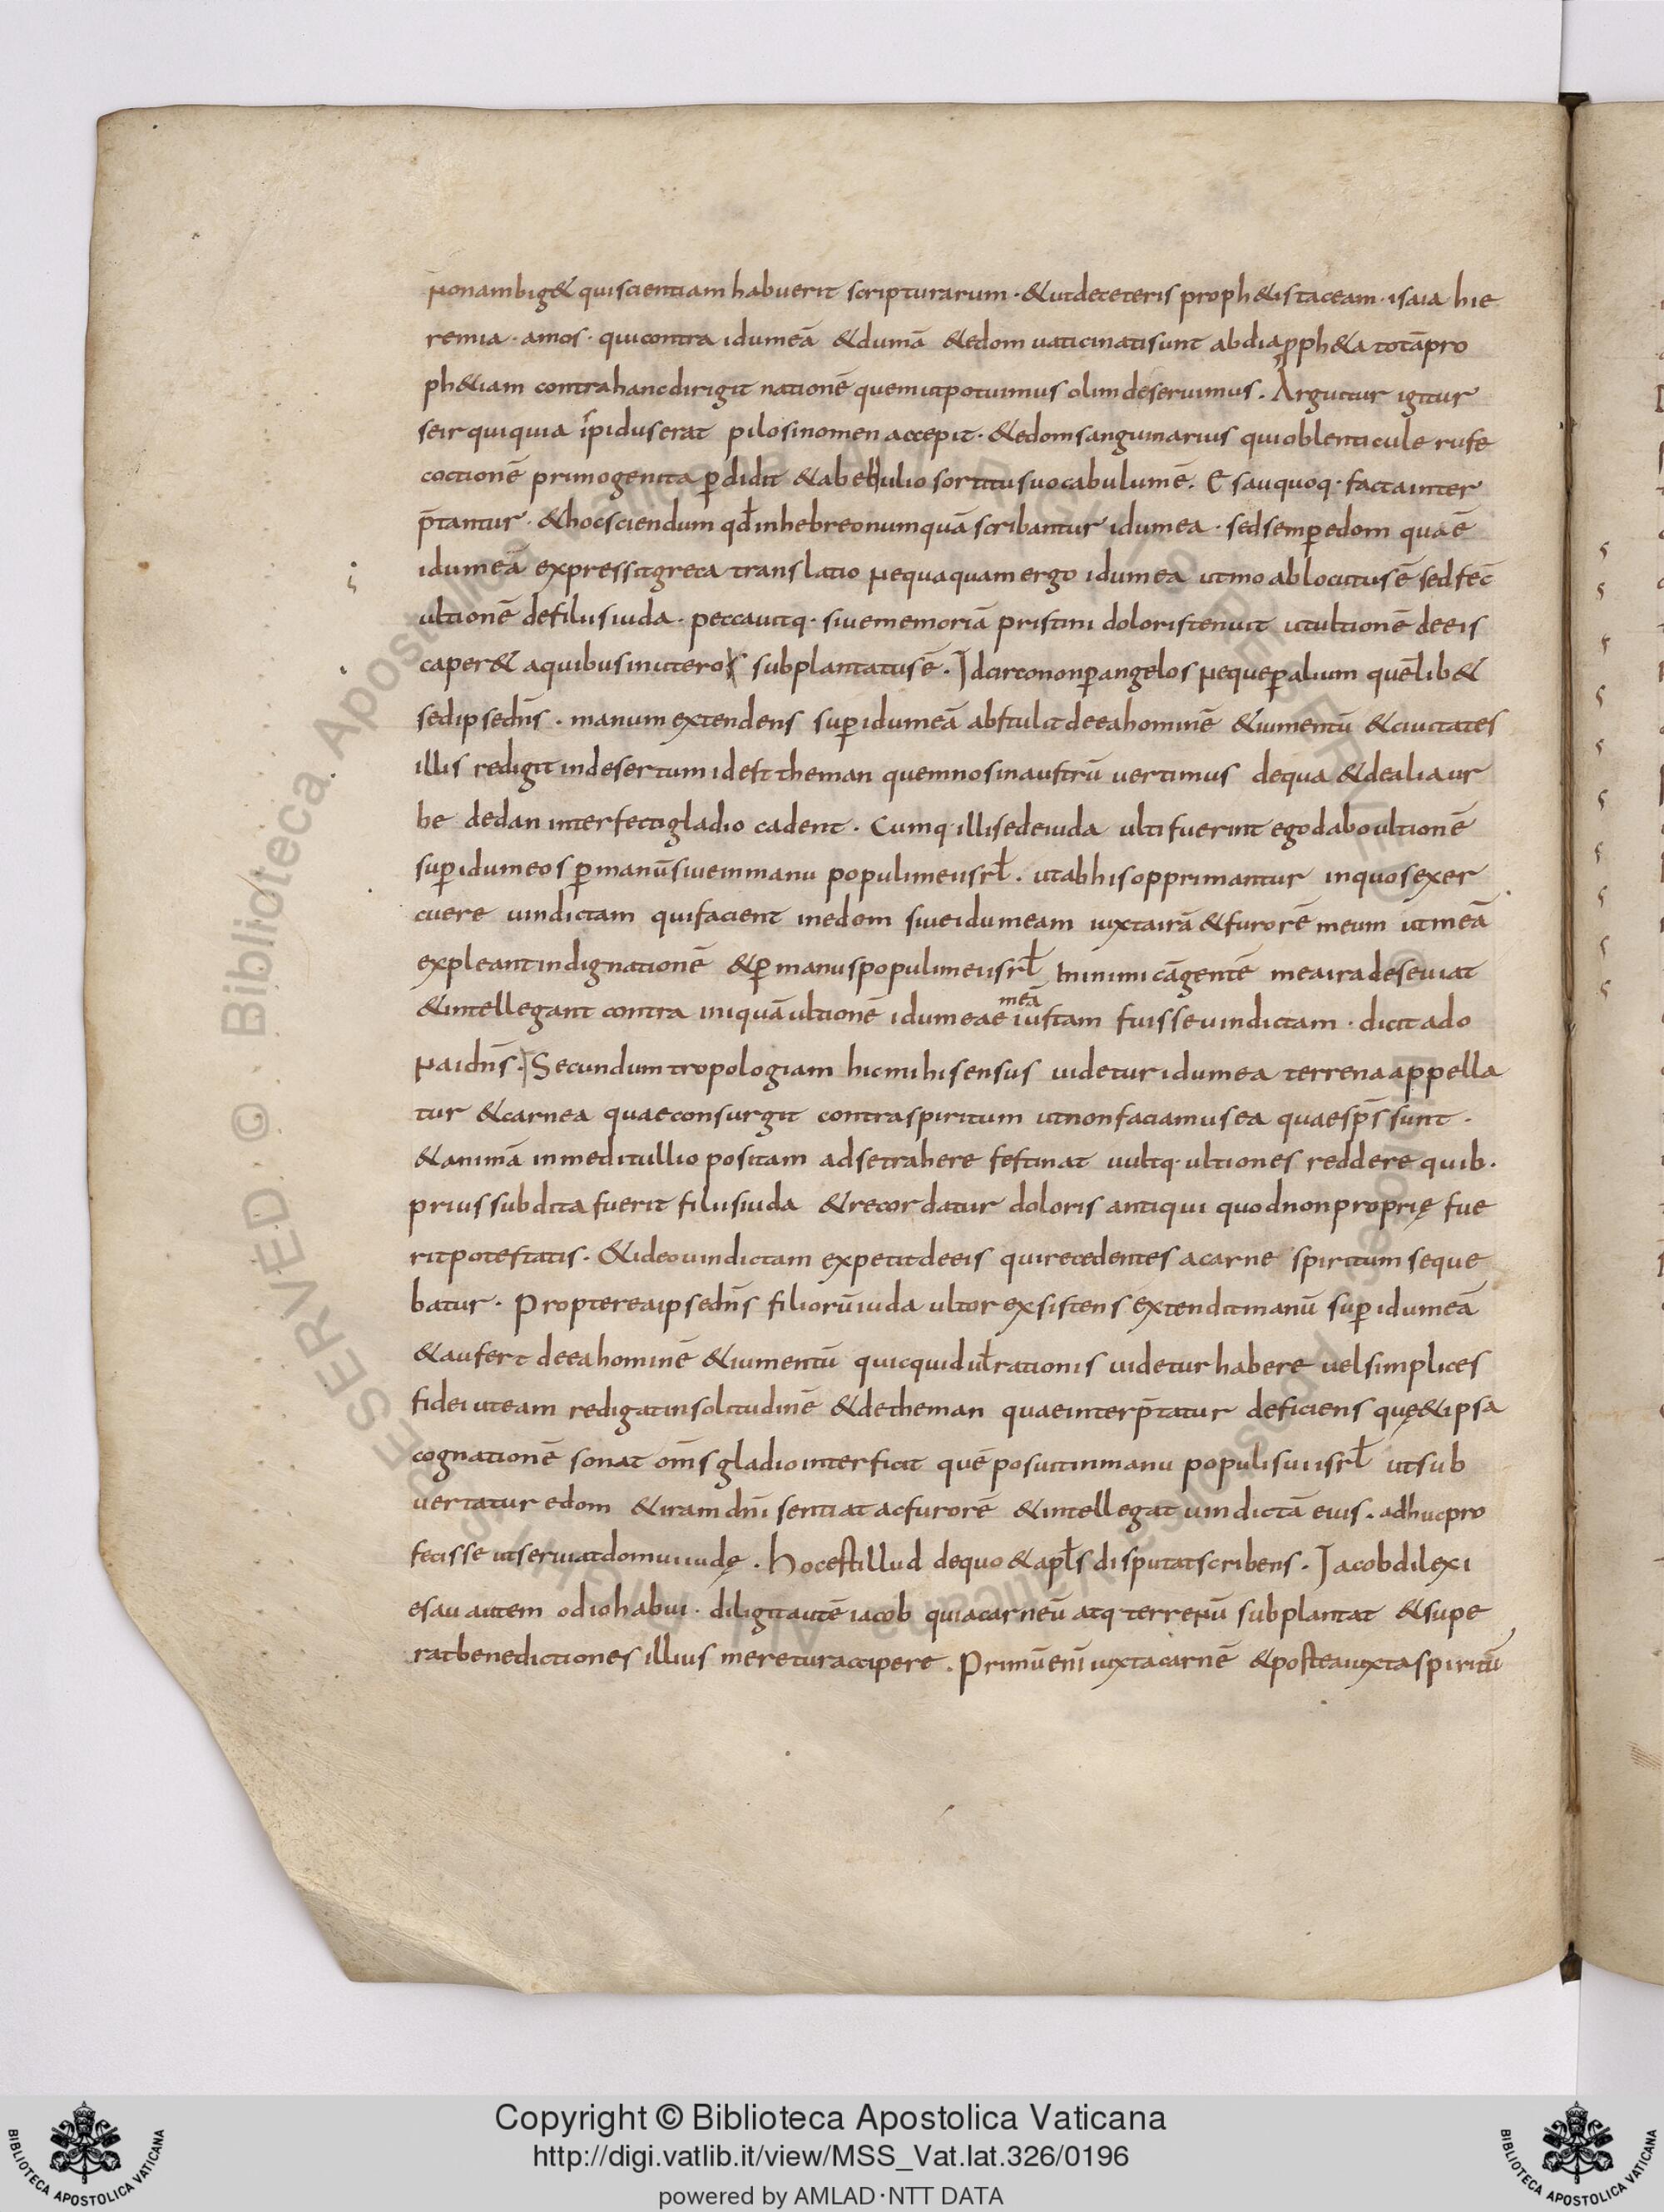 Nonambig& quiscientiam habuerit scripturarum · &utdeceteris proph&istaceam · isaia hie
remia · amos · quicontra idumeā &dumā &edom uaticinatisunt abdiaꝓph&a totāpro
ph&iam contrahancdirigit nationē quemutpotuimus olimdeseruimus . Arguitur igitur
seir quiquia ispiduserat pilosinomen accepit · &edomsanguinarius quioblenticule rufe
coctionē primogenita ꝑdidit &abebullio sortitusuocabulumē . Esauquoq· factainter
p̄tantur · &hocsciendum qđinhebreonumquā scribantur idumea · sedsemꝑedom quaē
idumeā expressitgreca translatio Nequaquam ergo idumea utmoablocutusē sedfec̄
ultionē defiliisiuda · peccauitq· siuememoriā pristini doloristenuit utultionē deeis
caper& aquibusinutero subplantatusē . Idcirconon ꝑangelos Nequeꝑalium quēlib&
sedipsedn̄s . manum extendens suꝑidumeā abstulit deeahominē &iumentū &ciuitates
illis redigit indesertum idest theman quemnosinaustrū uertimus dequa &dealiaur
be dedan interfectigladio cadent . Cumq· illisedeiuda ultifuerint egodaboultionē
suꝑidumeos ꝑmanūsiueinmanu populimeiisrł . utabhisopprimantur inquosexer
cuere uindictam quifacient inedom siueidumeam iuxtairā &furorē meum utmeā
expleantindignationē &ꝑmanuspopulimeiisrł ininimicāgentē meairadeseuiat
&intellegant contra iniquāultionē idumeae meā iustam fuisseuindictam · dicit ado
Naidn̄s . Secundum tropologiam hicmihisensus uidetur idumea terrena appella
tur &carnea quaeconsurgit contraspiritum utnonfaciamusea quaesp̄s sunt .
&animā inmeditullio positam adsetrahere festinat uultq· ultiones reddere quib.
priussubdita fuerit filiisiuda &recordatur doloris antiqui quodnonproprię fue
ritpotestatis . &ideouindictam expetitdeeis quirecedentes acarne spiritum seque
batur . Proptereaipsedn̄s filiorūiuda ultor exsistens extenditmanū suꝑidumeā
&aufert deeahominē &iumentū quicquidulˀrationis uidetur habere uelsimplices
fidei uteam redigatinsolitudinē &detheman quaeinterp̄tatur deficiens quę&ipsa
cognationē sonat om̄s gladiointerficit quē posuitinmanu populisuiisrł utsub
uertatur edom &iramdn̄i sentiat acfurorē &intellegat uindictā eius . adhucpro
fecisse utseruiatdomuiiudę . hocestillud dequo &apłs disputatscribens . Iacobdilexi
esau autem odiohabui · diligitautē iacob quiacarneū atq· terrenū subplantat &supe
ratbenedictiones illius mereturaccipere . Primūenī iuxtacarnē &posteaiuxtaspiritū
Copyright © Biblioteca Apostolica Vaticana
http://digi.vatlib.it/view/MSS_Vat.lat.326/0196
powered by AMLAD·NTT DATA
BIBLIOTECA APOSTOLICA VATICANA
BIBLIOTECA APOSTOLICA VATICANA